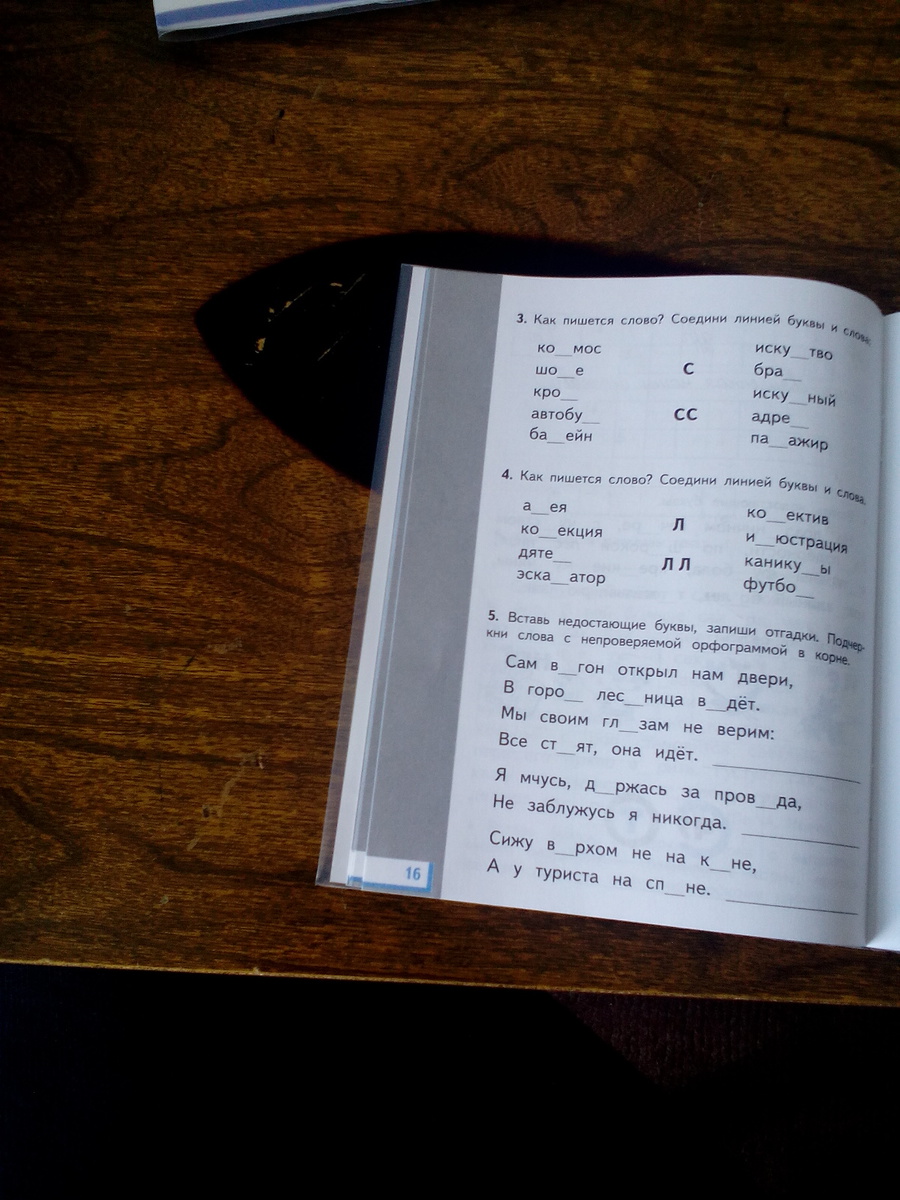 3. Как пишется слово? Соедини линией буквы и слова.
ко__мос
шо__е
кро__
автобу__
ба__ейн
С
СС
иску__тво
бра__
иску__ный
адре__
па__ажир
4. Как пишется слово? Соедини линией буквы и слова.
а__ея
ко__екция
дяте__
эска__атор
Л
ЛЛ
ко__ектив
и__юстрация
канику__ы
футбо__
5. Вставь недостающие буквы, запиши отгадки. Подчер-
кни слова с непроверяемой орфограммой в корне.
Сам в__гон открыл нам двери,
В горо__ лес__ница в__дёт.
Мы своим гл__зам не верим:
Все ст__ят, она идёт. ____________
Я мчусь, д__ржась за пров__да,
Не заблужусь я никогда. ____________
Сижу в__рхом не на к__не,
А у туриста на сп__не. ____________
16